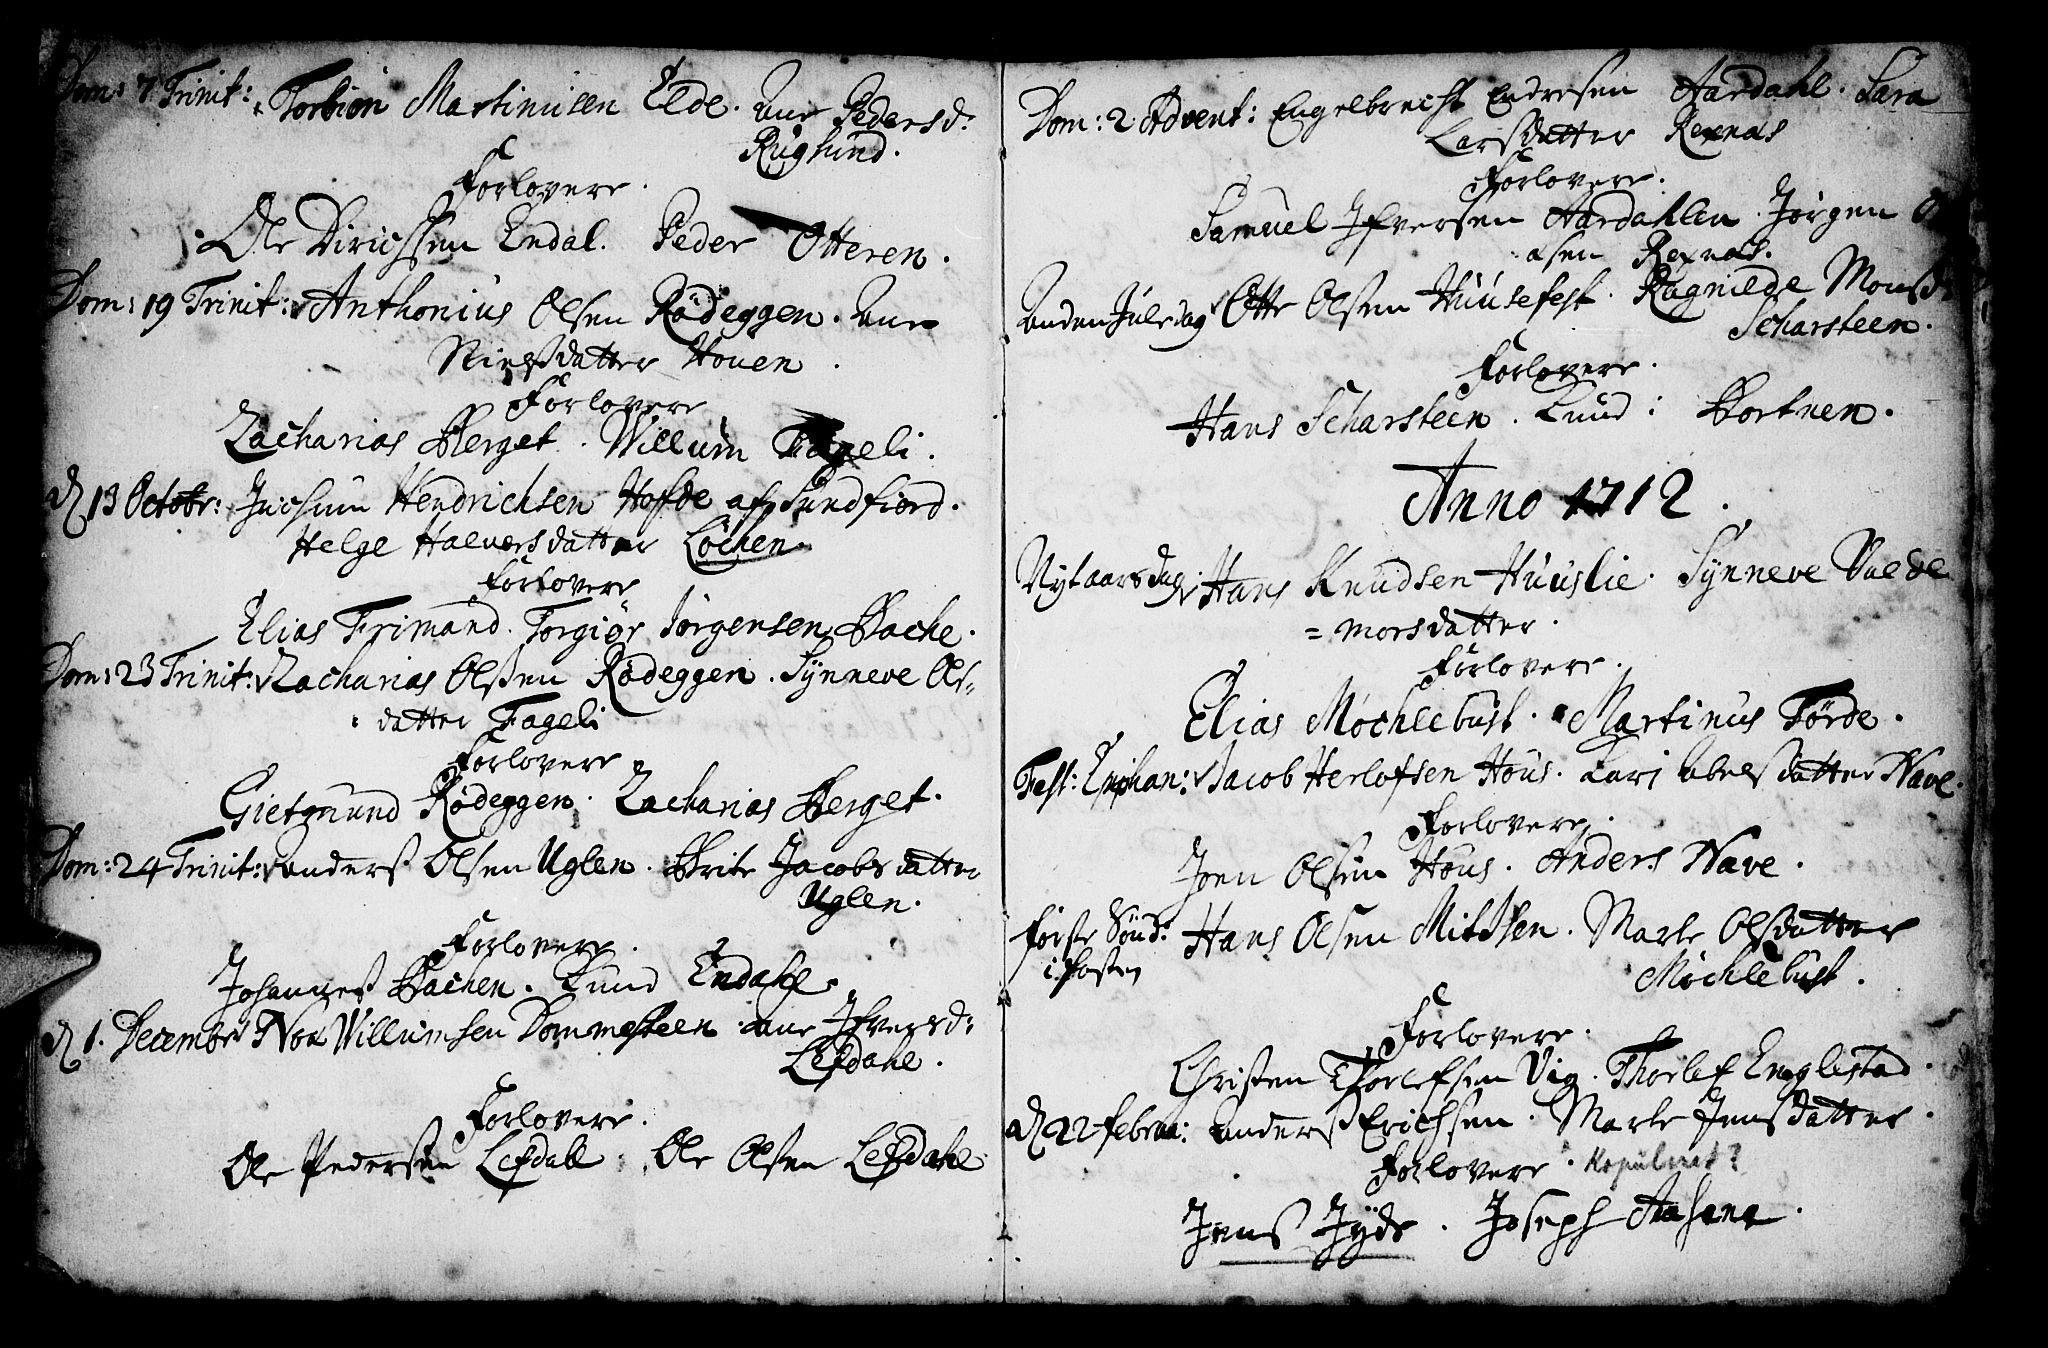 Dom: 7 Trinit: Torbiön Martinusen Elde. Ane Pedersd:
Ruglund.
Forlovere.
Ole Dirichssen Endal. Peder Otteren.
Dom: 19 Trinit: Anthonius Olsen Rödeggen. Ane
Nielsdatter Houen.
Forlovere
Zacharias Berget. Willum Fageli.
d 13 Octobr: Jochum Hendrichsen Hofde af Sundfiord.
Helge Halversdatter Löchen.
Forlovere
Elias Frimand. Torgiör Jörgensen Bache.
Dom: 23 Trinit: Zacharias Olsen Rödeggen. Synneve Ols-
datter Fageli
Forlovere
Gietmund Rödeggen. Zacharias Berget.
Dom: 24 Trinit: Anders Olsen Uglen. Brite Jacobsdatter
Uglen.
Forlovere.
Johannes Bachen. Knud Endahl.
d 1. December Noa Willumsen Dommesteen. Ane Ifversd:
Lefdahl.
Forlovere.
Ole Pedersen Lefdall. Ole Olsen Lefdahl
Dom: 2 Advent: Engelbrecht Endresen Aardahl. Sara
Larsdatter Rexnäs
Forlovere.
Samuel Ifversen Aardahlen. Jörgen
Rexnäs.
Anden Juledag Otte Olsen Huusefest. Ragnilde Monsd:
Scharsteen.
Forlovere.
Hans Scharsteen. Knud i Bortnen.
Anno 1712.
Nytaarsdag Hans Knudsen Huuslie. Synneve Valde
= morsdatter.
Forlovere.
Elias Möchlebust. Martinus Förde.
Fest: Epiphan: Jacob Herlofsen Hous. Kari Abelsdatter Nave.
Forlovere.
Joen Olsen Hous. Anders Nave.
förste Sönd: Hans Olsen Mittsen. Marte Olsdatter
i fasten Möchlebust.
Forlovere.
Christen Thorlefsen Vig. Thorlef Englestad.
d 22 februa: Anders Erichsen. Marte Jensdatter.
Forlovere. Kopuleret?
Jens Jyde. Joseph Aahane.